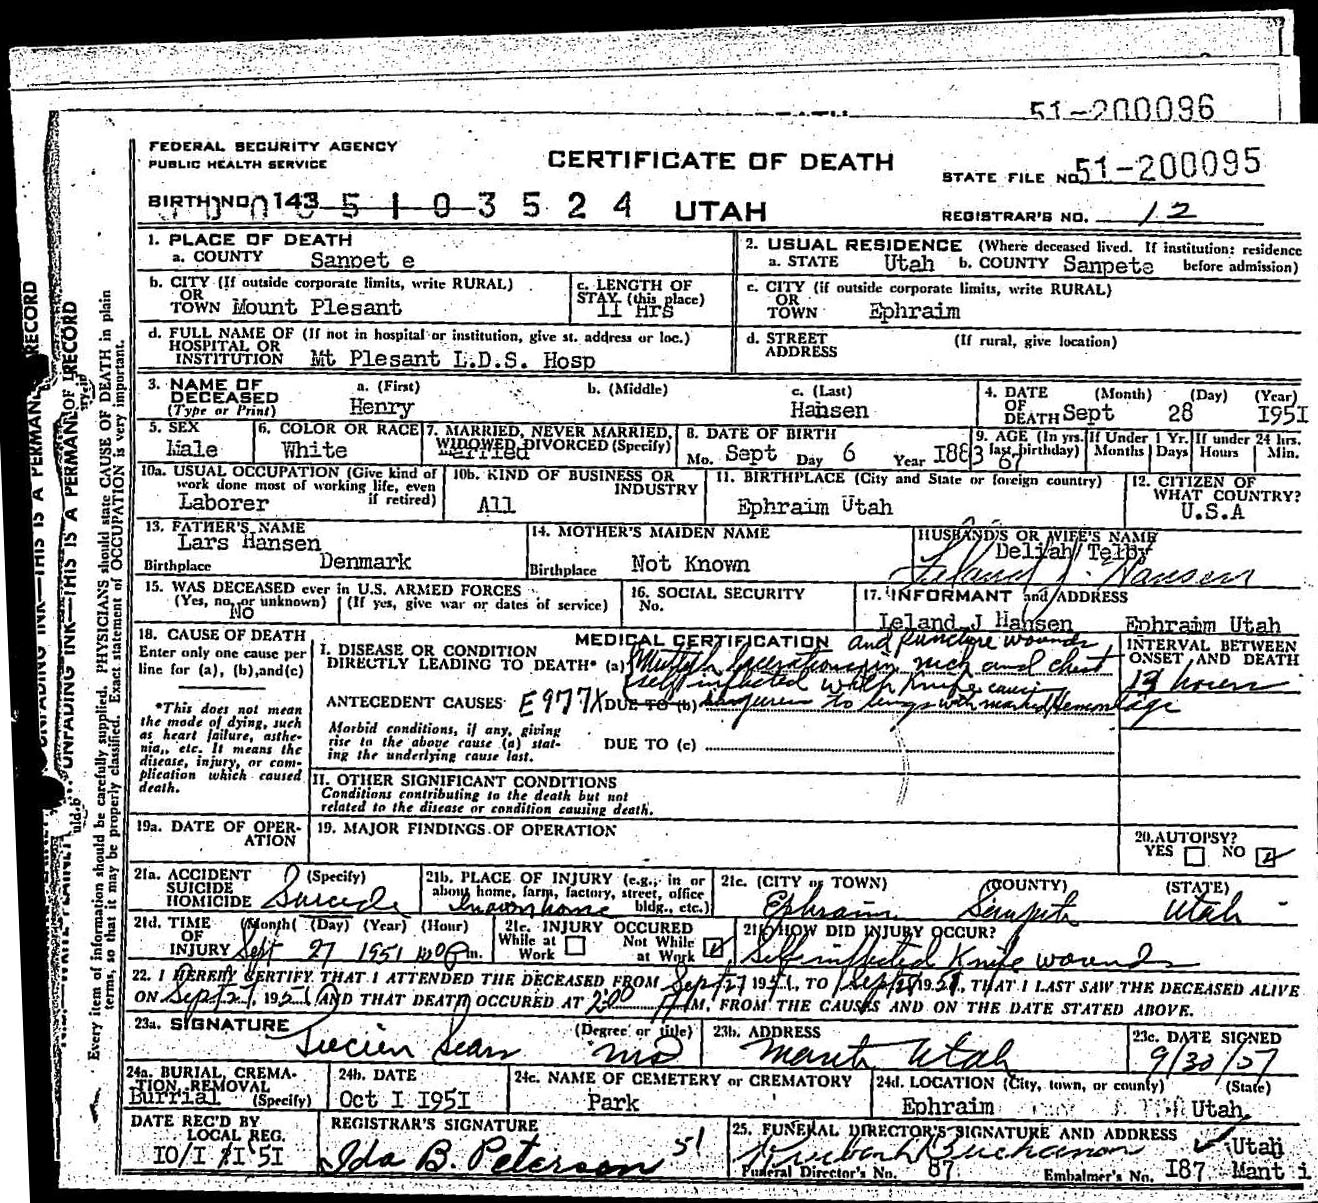 51-200096
FEDERAL SECURITY AGENCY
PUBLIC HEALTH SERVICE
CERTIFICATE OF DEATH
STATE FILE NO. 51-200095
BIRTH NO. 143 5 1 0 3 5 2 4 UTAH
REGISTRAR'S NO. 12
1. PLACE OF DEATH
a. COUNTY Sanpet e
2. USUAL RESIDENCE (Where deceased lived. If institution: residence before admission)
a. STATE Utah b. COUNTY Sanpete
b. CITY (If outside corporate limits, write RURAL)
OR TOWN Mount Plesant
c. LENGTH OF STAY (this place) 11 Hrs
c. CITY (if outside corporate limits, write RURAL)
OR TOWN Ephraim
d. FULL NAME OF (If not in hospital or institution, give st. address or loc.)
HOSPITAL OR INSTITUTION Mt Plesant L.D.S. Hosp
d. STREET ADDRESS (If rural, give location)
3. NAME OF DECEASED (Type or Print)
a. (First) b. (Middle) c. (Last)
Henry Hansen
4. DATE OF DEATH (Month) (Day) (Year)
Sept 28 I95I
5. SEX Male
6. COLOR OR RACE White
7. MARRIED, NEVER MARRIED, WIDOWED DIVORCED (Specify) Married
8. DATE OF BIRTH
Mo. Sept Day 6 Year I883
9. AGE (In yrs. last birthday) 67
If Under 1 Yr. Months Days
If under 24 hrs. Hours Min.
10a. USUAL OCCUPATION (Give kind of work done most of working life, even if retired)
Laborer
10b. KIND OF BUSINESS OR INDUSTRY
All
11. BIRTHPLACE (City and State or foreign country)
Ephraim Utah
12. CITIZEN OF WHAT COUNTRY?
U.S.A
13. FATHER'S NAME
Lars Hansen
Birthplace Denmark
14. MOTHER'S MAIDEN NAME
Birthplace Not Known
HUSBAND'S OR WIFE'S NAME
Delilah Telby
Leland J. Hansen
15. WAS DECEASED ever in U.S. ARMED FORCES
(Yes, no, or unknown) (If yes, give war or dates of service)
No
16. SOCIAL SECURITY No.
17. INFORMANT and ADDRESS
Leland J Hansen Ephraim Utah
18. CAUSE OF DEATH
Enter only one cause per line for (a), (b), and (c)
*This does not mean the mode of dying, such as heart failure, asthenia, etc. It means the disease, injury, or complication which caused death.
MEDICAL CERTIFICATION
I. DISEASE OR CONDITION DIRECTLY LEADING TO DEATH* (a) Multiple lacerations in neck and chest
and puncture wounds
self inflicted with knife
ANTECEDENT CAUSES E977X DUE TO (b) to lungs with marked Hemorrhage
Morbid conditions, if any, giving rise to the above cause (a) stating the underlying cause last.
DUE TO (c)
INTERVAL BETWEEN ONSET AND DEATH
hours
II. OTHER SIGNIFICANT CONDITIONS
Conditions contributing to the death but not related to the disease or condition causing death.
19a. DATE OF OPERATION
19. MAJOR FINDINGS OF OPERATION
20. AUTOPSY?
YES NO
21a. ACCIDENT SUICIDE HOMICIDE (Specify)
Suicide
21b. PLACE OF INJURY (e.g., in or about home, farm, factory, street, office bldg., etc.)
In own home
21c. (CITY or TOWN) (COUNTY) (STATE)
Ephraim Sanpete Utah
21d. TIME OF INJURY (Month) (Day) (Year) (Hour)
Sept 27 1951 m.
21e. INJURY OCCURED
While at Work Not While at Work
21f. HOW DID INJURY OCCUR?
Self inflicted Knife wounds
22. I HEREBY CERTIFY THAT I ATTENDED THE DECEASED FROM Sept 27 1951, TO Sept 1951, THAT I LAST SAW THE DECEASED ALIVE
ON Sept 27, 1951 AND THAT DEATH OCCURED AT 2:00 M, FROM THE CAUSES AND ON THE DATE STATED ABOVE.
23a. SIGNATURE (Degree or title)
Lucien Sears MD
23b. ADDRESS
Manti Utah
23c. DATE SIGNED
9/30/51
24a. BURIAL, CREMATION, REMOVAL (Specify)
Burrial
24b. DATE
Oct I I95I
24c. NAME OF CEMETERY or CREMATORY
Park
24d. LOCATION (City, town, or county) (State)
Ephraim Utah
DATE REC'D BY LOCAL REG.
IO/I /I 5I
REGISTRAR'S SIGNATURE
Ida B. Peterson 51
25. FUNERAL DIRECTOR'S SIGNATURE AND ADDRESS
Buchanan Utah
Funeral Director's No. 87 Embalmer's No. I87 Mant i
Every item of information should be carefully supplied. PHYSICIANS should state CAUSE OF DEATH in plain
terms, so that it may be properly classified. Exact statement of OCCUPATION is very important.
UNFADING INK—THIS IS A PERMANENT RECORD